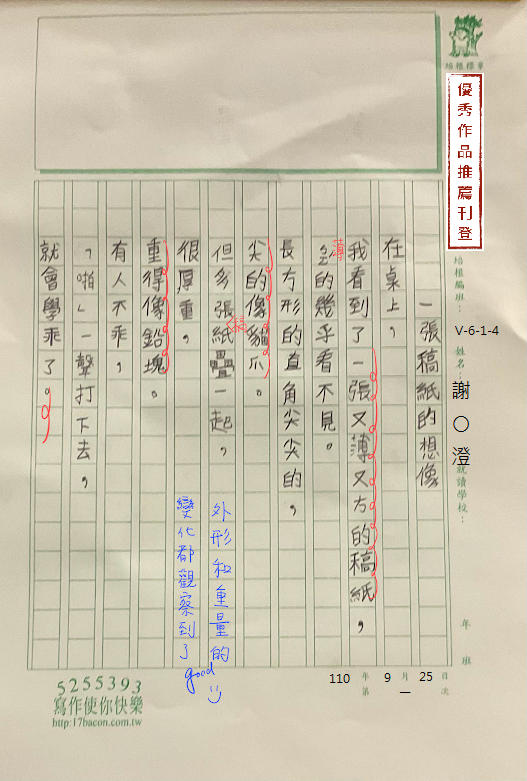 培根標竿
優秀作品推薦刊登
培根編班：
V-6-1-4
姓名：
謝〇澄
就讀學校：
年班
一張稿紙的想像
在桌上，
我看到了一張又薄又方的稿紙，
薄
的幾乎看不見。
長方形的直角尖尖的，
尖的像貓爪。
但多張稿紙疊一起，
很厚重，
重得像鉛塊。
有人不乖，
「啪」一聲打下去，
就會學乖了。
外形和重量的
變化都觀察到了
good
110年9月25日
第一次
5255393
寫作使你快樂
http:17bacon.com.tw